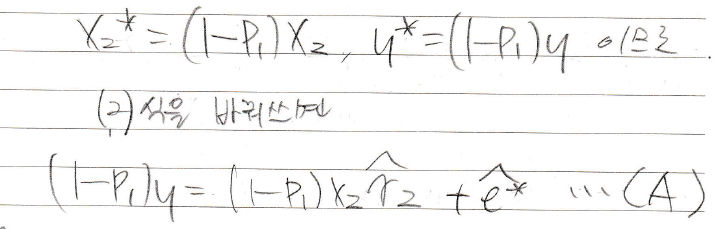 X₂* = (1-P₁)X₂, y* = (1-P₁)y 이므로
(2)식을 바꿔쓰면
(1-P₁)y = (1-P₁)X₂r̂₂ + ê* … (A)